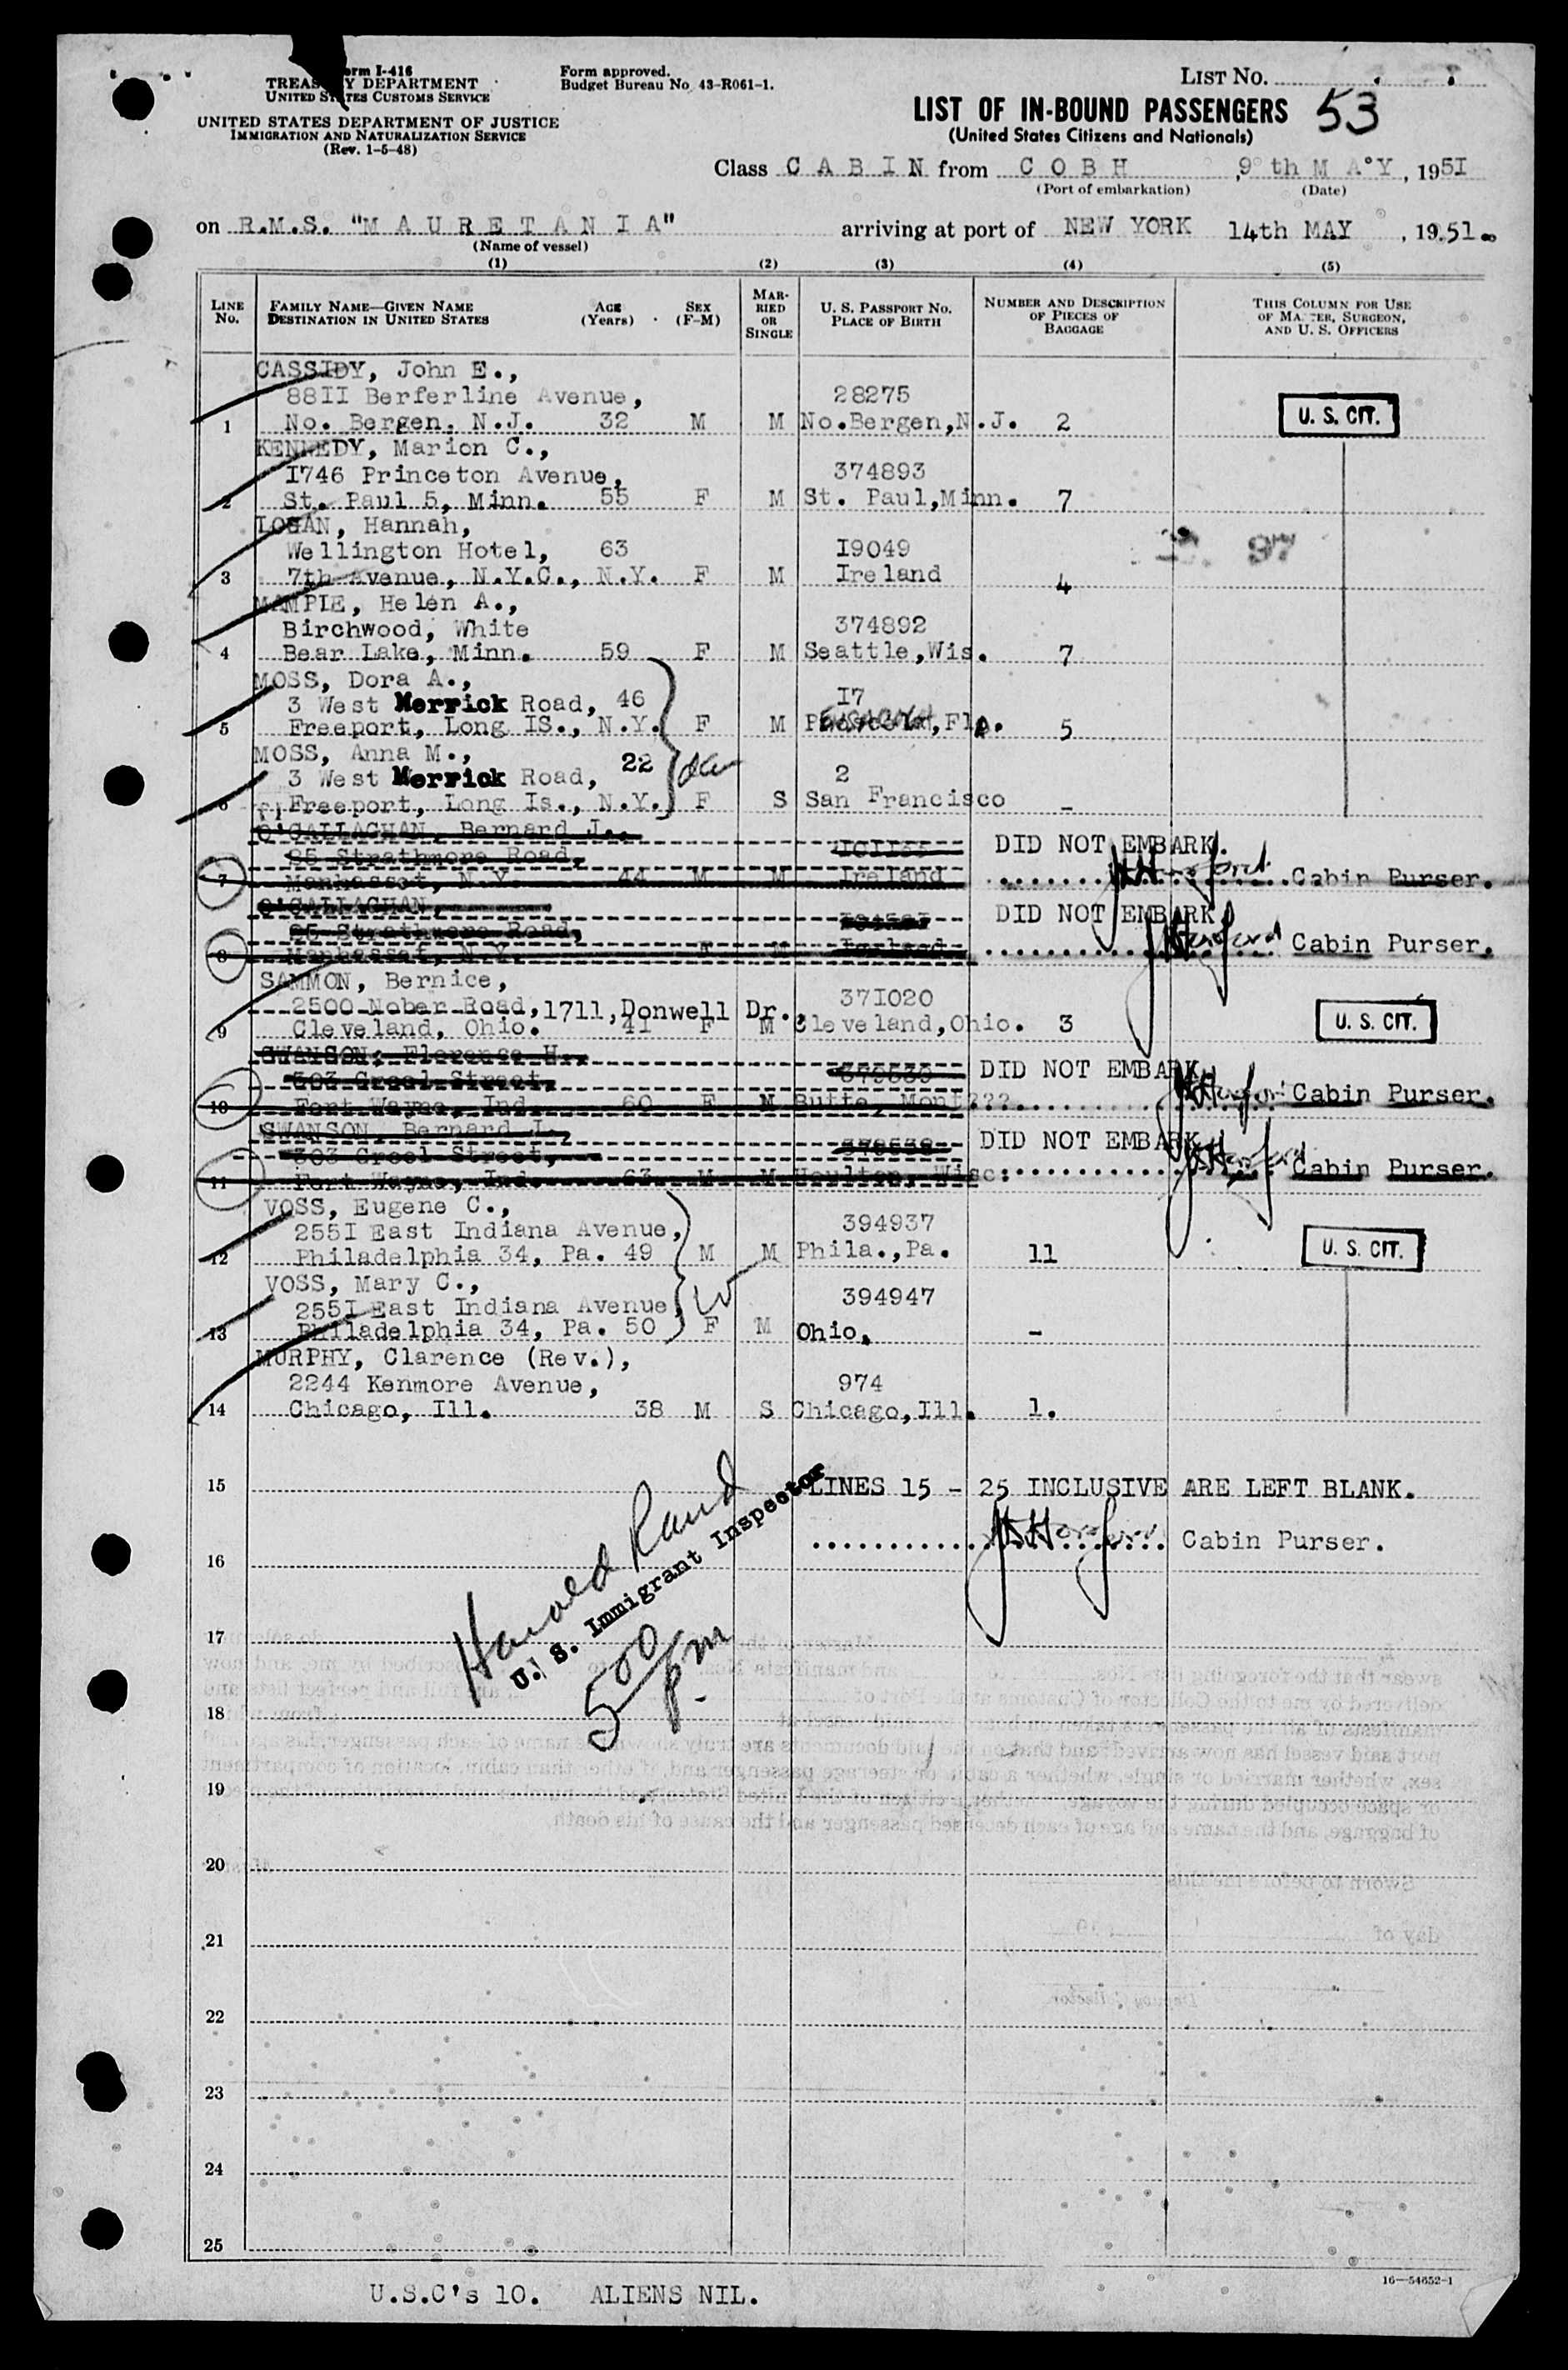 Form I-416
TREASURY DEPARTMENT
UNITED STATES CUSTOMS SERVICE
UNITED STATES DEPARTMENT OF JUSTICE
IMMIGRATION AND NATURALIZATION SERVICE
(Rev. 1-5-48)
Form approved.
Budget Bureau No. 43-R061-1.
LIST NO.
LIST OF IN-BOUND PASSENGERS 53
(United States Citizens and Nationals)
Class C A B I N from C O B H , 9 th M A Y , 1951
(Port of embarkation) (Date)
on R.M.S. "M A U R E T A N I A" arriving at port of NEW YORK 14th MAY , 1951.
(Name of vessel)
(1) (2) (3) (4) (5)
LINE NO. FAMILY NAME—GIVEN NAME DESTINATION IN UNITED STATES AGE (Years) SEX (F-M) MARRIED OR SINGLE U. S. PASSPORT NO. PLACE OF BIRTH NUMBER AND DESCRIPTION OF PIECES OF BAGGAGE THIS COLUMN FOR USE OF MASTER, SURGEON, AND U. S. OFFICERS
CASSIDY, John E.,
88II Berferline Avenue, 28275
1 No. Bergen, N.J. 32 M M No.Bergen,N.J. 2 U. S. CIT.
KENNEDY, Marion C.,
I746 Princeton Avenue, 374893
2 St. Paul 5, Minn. 55 F M St. Paul,Minn. 7
LOGAN, Hannah,
Wellington Hotel, 63 I9049 97
3 7th Avenue, N.Y.C., N.Y. F M Ireland 4
MAMPIE, Helen A.,
Birchwood, White 374892
4 Bear Lake, Minn. 59 F M Seattle,Wis. 7
MOSS, Dora A.,
3 West Merrick Road, 46 I7
5 Freeport, Long IS., N.Y. F M Pensacola, Fla. 5
MOSS, Anna M.,
3 West Merrick Road, 22 2
6 Freeport, Long Is., N.Y. F S San Francisco -
O'CALLAGHAN, Bernard J.,
95 Strathmore Road, DID NOT EMBARK.
7 Manhasset, N.Y. 44 M M Ireland Cabin Purser.
O'CALLAGHAN, DID NOT EMBARK
95 Strathmore Road,
8 Manhasset, N.Y. F M Ireland Cabin Purser.
SAMMON, Bernice,
2500 Nober Road, 1711, Donwell Dr., 37I020
9 Cleveland, Ohio. 41 F M Cleveland,Ohio. 3 U. S. CIT.
SWANSON, Florence H.,
303 Creel Street, 379539 DID NOT EMBARK
10 Fort Wayne, Ind. 60 F M Butte, Mont??? Cabin Purser.
SWANSON, Bernard J., 379538 DID NOT EMBARK
303 Creel Street,
11 Fort Wayne, Ind. 63 M M Houlton, Wisc: Cabin Purser.
VOSS, Eugene C.,
255I East Indiana Avenue, 394937
12 Philadelphia 34, Pa. 49 M M Phila.,Pa. 11 U. S. CIT.
VOSS, Mary C.,
255I East Indiana Avenue, 394947
13 Philadelphia 34, Pa. 50 F M Ohio. -
MURPHY, Clarence (Rev.),
2244 Kenmore Avenue, 974
14 Chicago, Ill. 38 M S Chicago,Ill. 1.
15 LINES 15 - 25 INCLUSIVE ARE LEFT BLANK.
Cabin Purser.
16
Harold Rand
U. S. Immigrant Inspector
500 pm
17
18
19
20
21
22
23
24
25
16—54652-1
U.S.C's 10. ALIENS NIL.